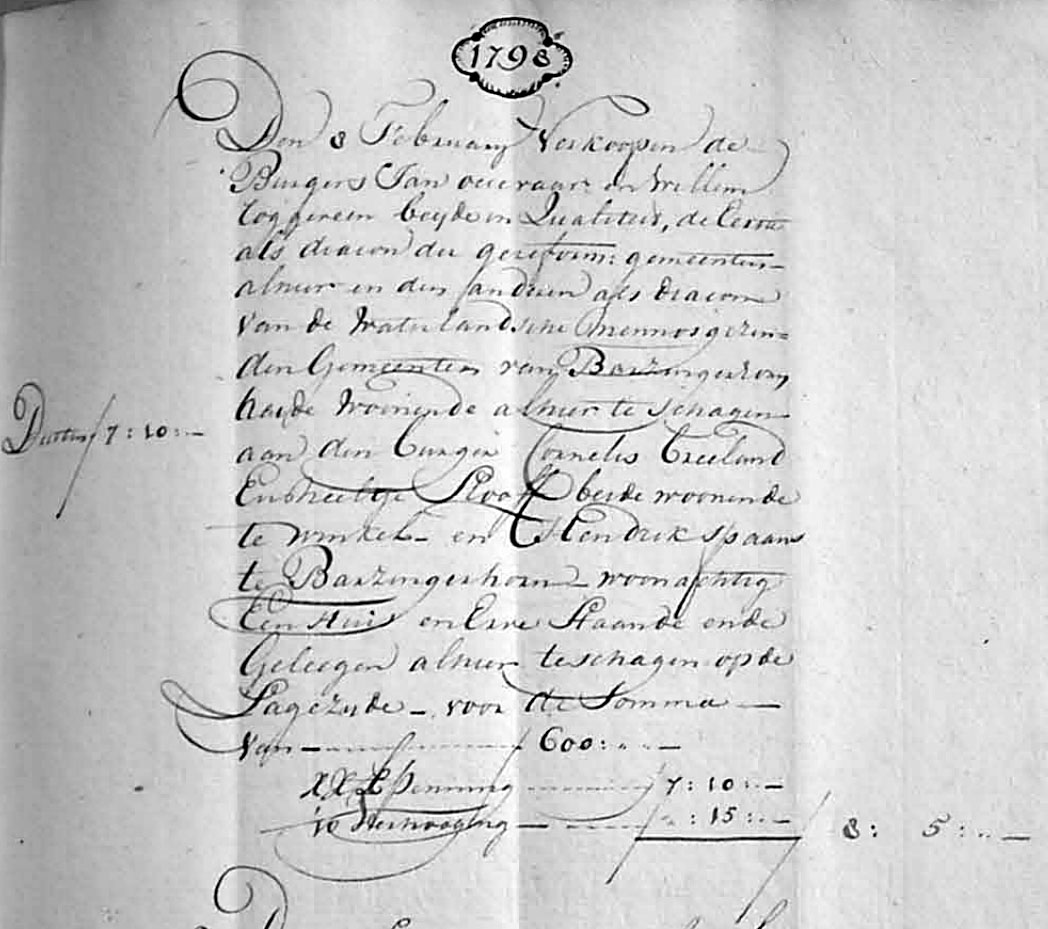 1798
Den 8 February Verkoopen de
Burgers Jan ouwraar en Willem
loggereen beijde in Qualiteit, de Eerste
als diacon der gereform: gemeenten
alhier en den anderen als diacon
van de Waterlandsche mennosgezin=
den Gemeenten van Barzingerhorn
beijde Woonende alhier te schagen
Duiten 7 : 10 : —
aan den burger Cornelis Vreeland
En Neeltje Slooff beide woonende
te winkel en Hendrik spaans
te Barzingerhorn woonachtig
Een Huis en Erve Staande ende
Geleegen alhier te schagen op de
Lagezijde voor de Somma
van — 600 : .. —
XXXX penning 7 : 10 : —
10 Verhooging — : 15 : .. — 8 : 5 : .. —